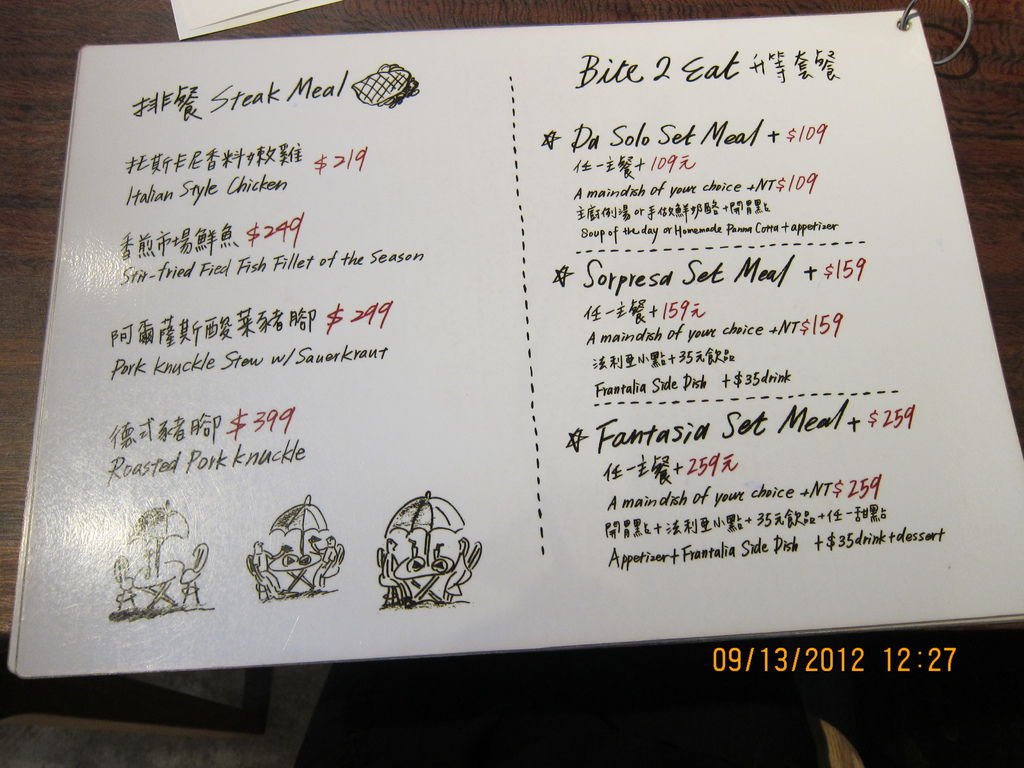 排餐 Steak Meal
托斯卡尼香料嫩雞 $219
Italian Style Chicken
香煎市場鮮魚 $249
Stir-fried Fied Fish Fillet of the Season
阿爾薩斯酸菜豬腳 $299
Pork Knuckle Stew w/Sauerkraut
德式豬腳 $399
Roasted Pork Knuckle
Bite 2 Eat 升等套餐
Da Solo Set Meal + $109
任一主餐 + 109元
A maindish of your choice +NT$109
主廚例湯 or 手做鮮奶酪 +開胃點
Soup of the day or Homemade Panna Cotta + appetizer
Sorpresa Set Meal + $159
任一主餐 + 159元
A maindish of your choice +NT$159
法利亞小點 + 35元飲品
Frantalia Side Dish + $35drink
Fantasia Set Meal + $259
任一主餐 + 259元
A maindish of your choice +NT$259
開胃點 + 法利亞小點 + 35元飲品 + 任一甜點
Appetizer + Frantalia Side Dish + $35drink + dessert
09/13/2012 12:27